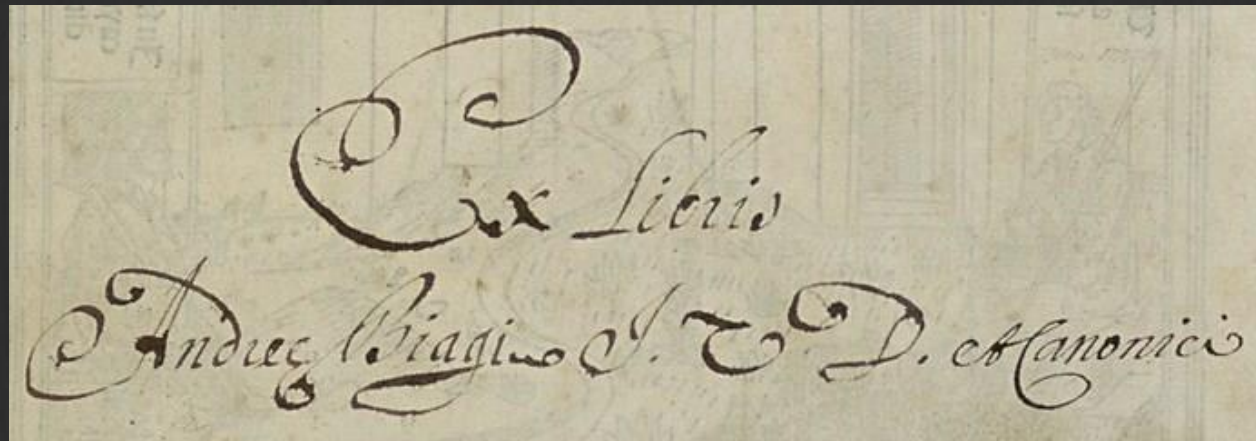 Ex Libris
Andreę Biagi J. V. D. et Canonici